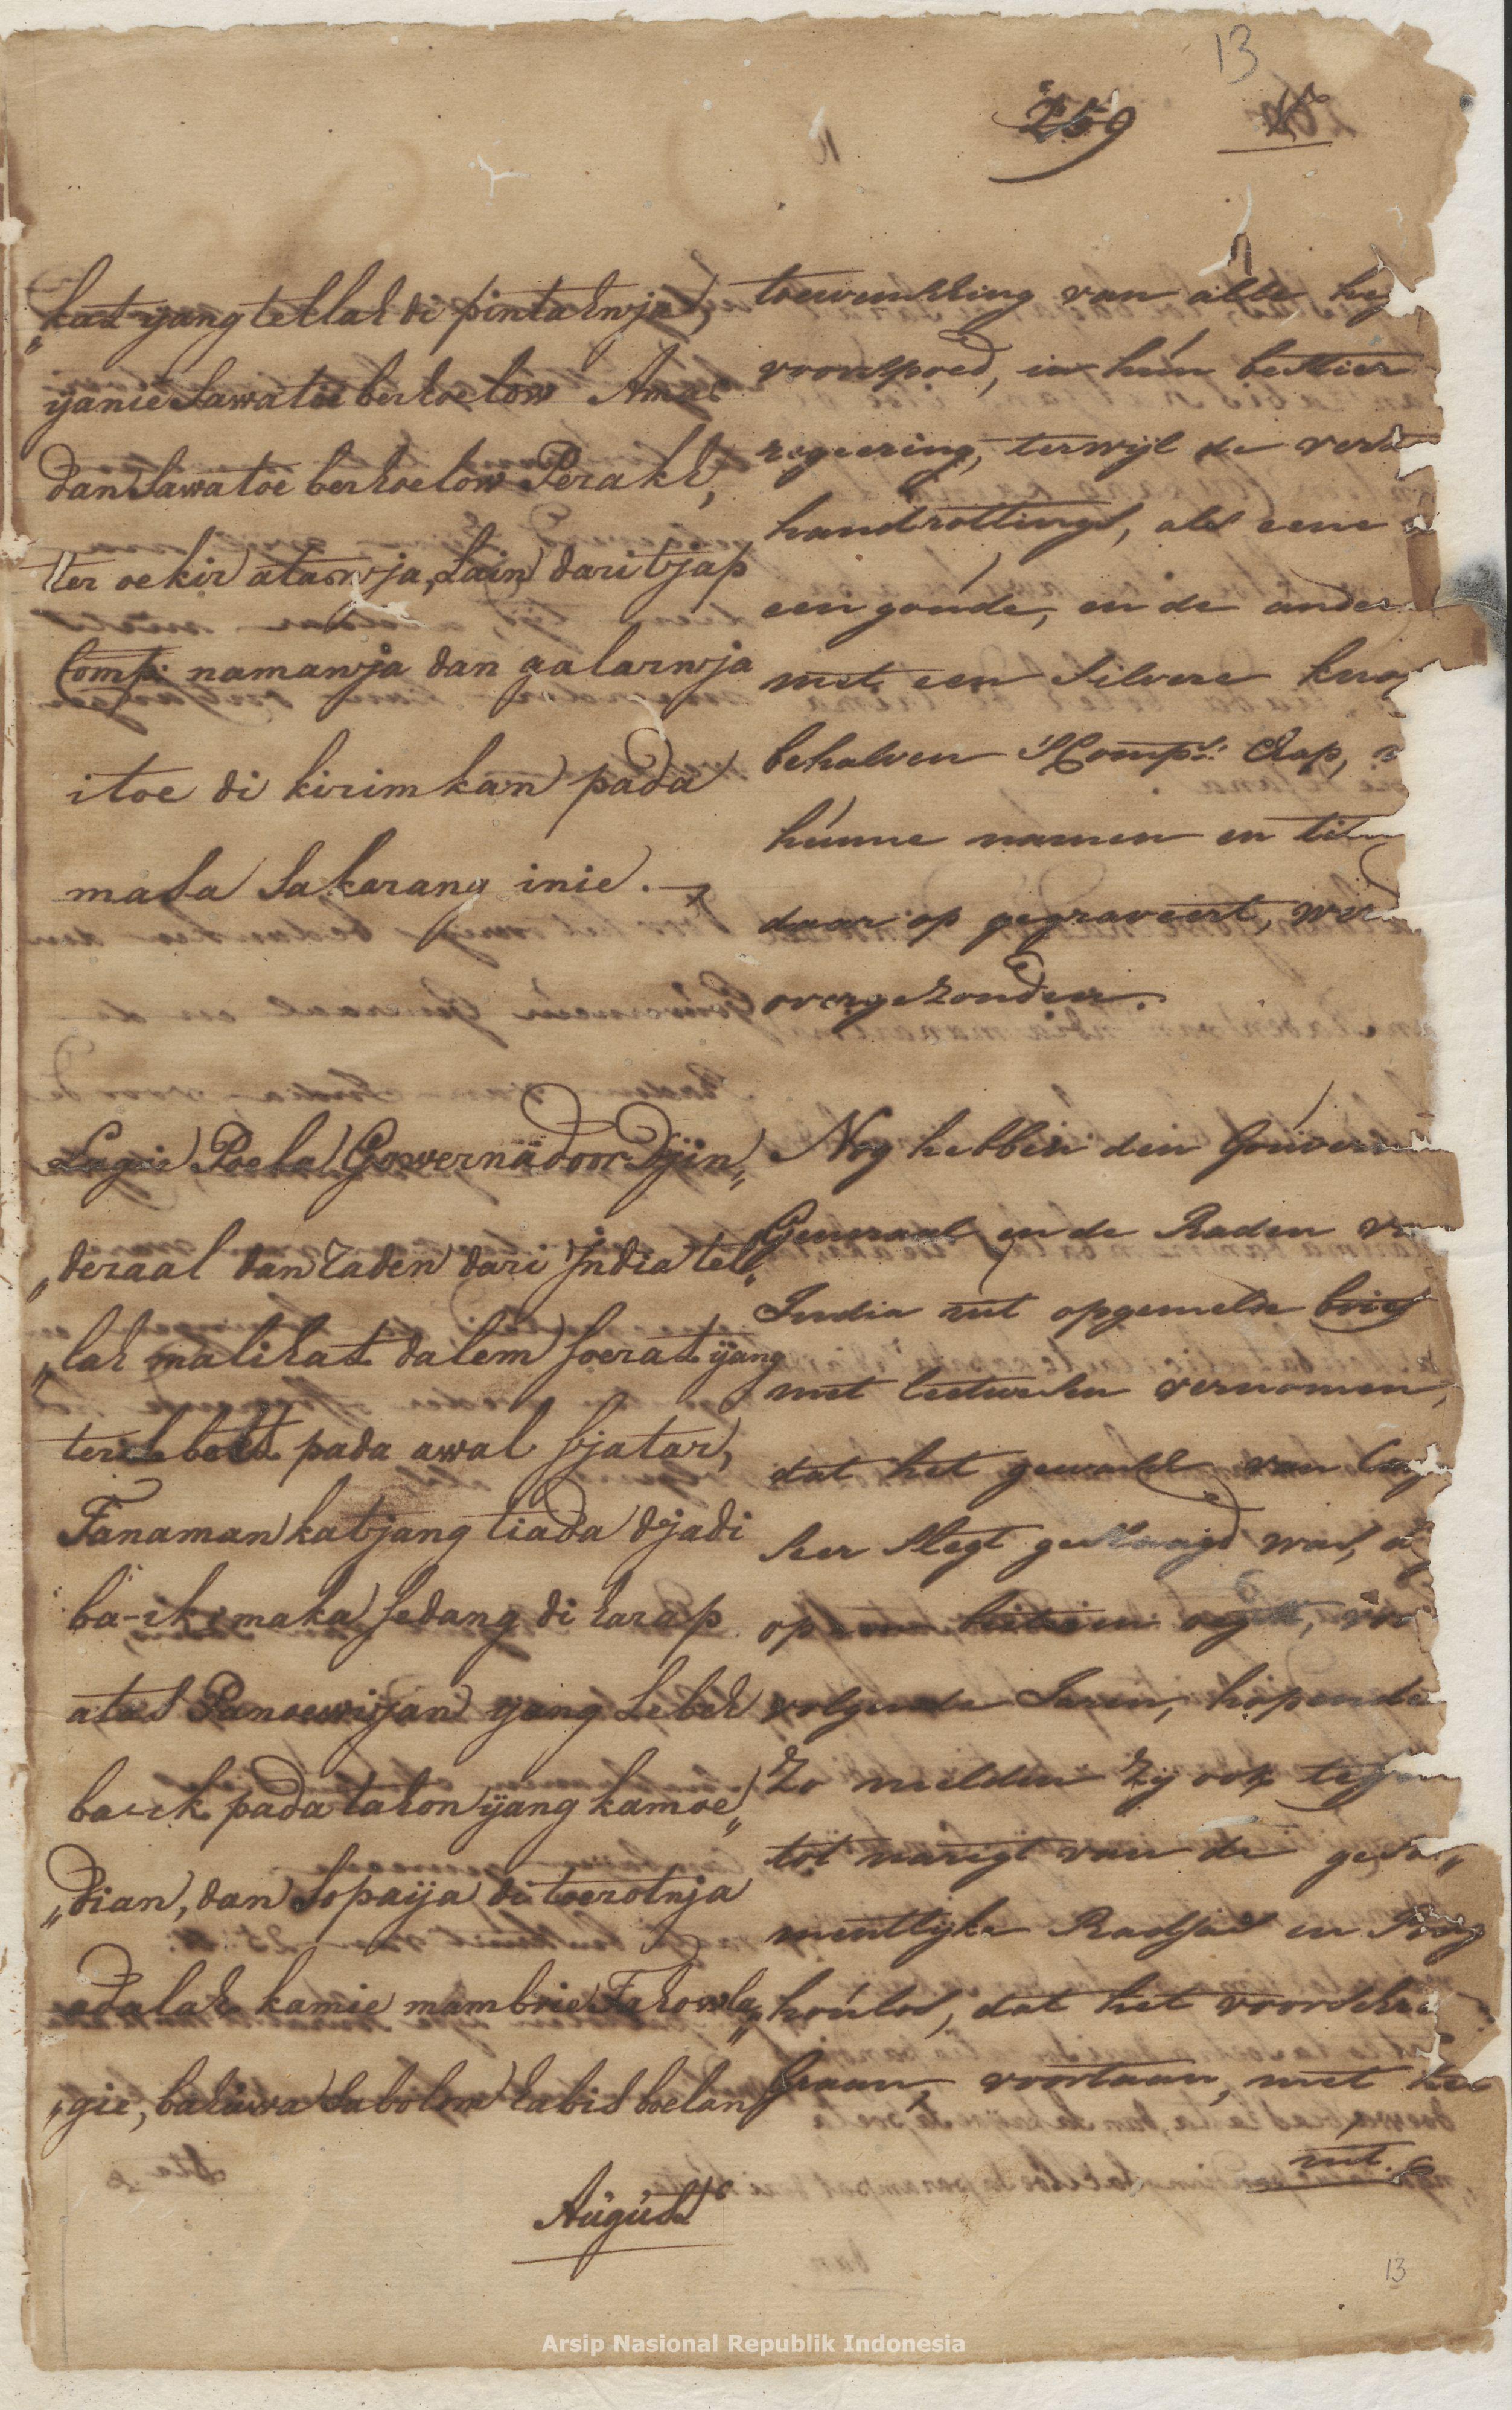 13
259
„kat yang tellah di pintahnja,
ijanie Sawatoe berhoelow Amas
dan Sawatoe berhoelow Perakh,
ter oekir atasnja, Lain dari tjap
Comp: namanja dan galarnja
itoe di kirimkan pada
masa Sakarang inie.
Lagie Poela Governadoor Djin„
„deraal dan Raden dari India tel„
„lah malihat dalem soerat ijang
terseboet pada awal sjatar,
Tanaman katjang tiada djadi
ba-ik, maka sedang di harap
atas Panoewijan yang Lebeh
ba-ik pada tahon ijang kamoe„
„dian, dan Sopaija di toerotnja
adalah kamie mambrie Tahowla„
„gie, bahawa Sabolom habis boelan
August
toewensching van alle
voorspoed, in hún bestier
regeering, terwijl de
handrottings, als eene
een goude, en de ander
met een Silvere
behalven 'SComps: Chap,
húnne namen en
daar op gegraveert,
overgezonden.
Nog hebben den
Generaal en de Raden
India uit opgemelde brief
met leetwesen vernomen,
dat het gewasch van
seer slegt geslaagd was,
op een beteren oegst,
volgende Jaren, hopende
Zo melden Zy ook
tot narigt van de
mentlijke Radjas en
hoúlos, dat het
graan, voortaan, met
uit
13
Arsip Nasional Republik Indonesia